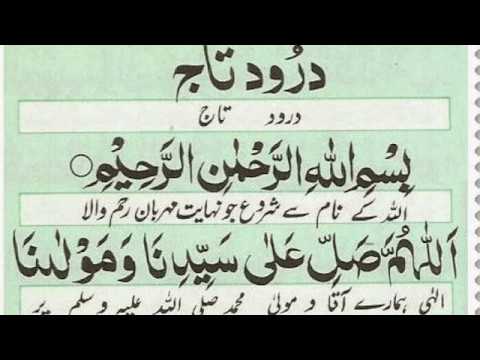 درُود تاج
درود تاج
بِسْمِ اللهِ الرَّحْمٰنِ الرَّحِيْمِ○
اللہ کے نام سے شروع جو نہایت مہربان رحم والا
اَللّٰهُمَّ صَلِّ عَلٰى سَيِّدِنَا وَمَوْلٰىنَا
الٰہی ہمارے آقا و مولیٰ محمد صلی اللہ علیہ وسلم پر